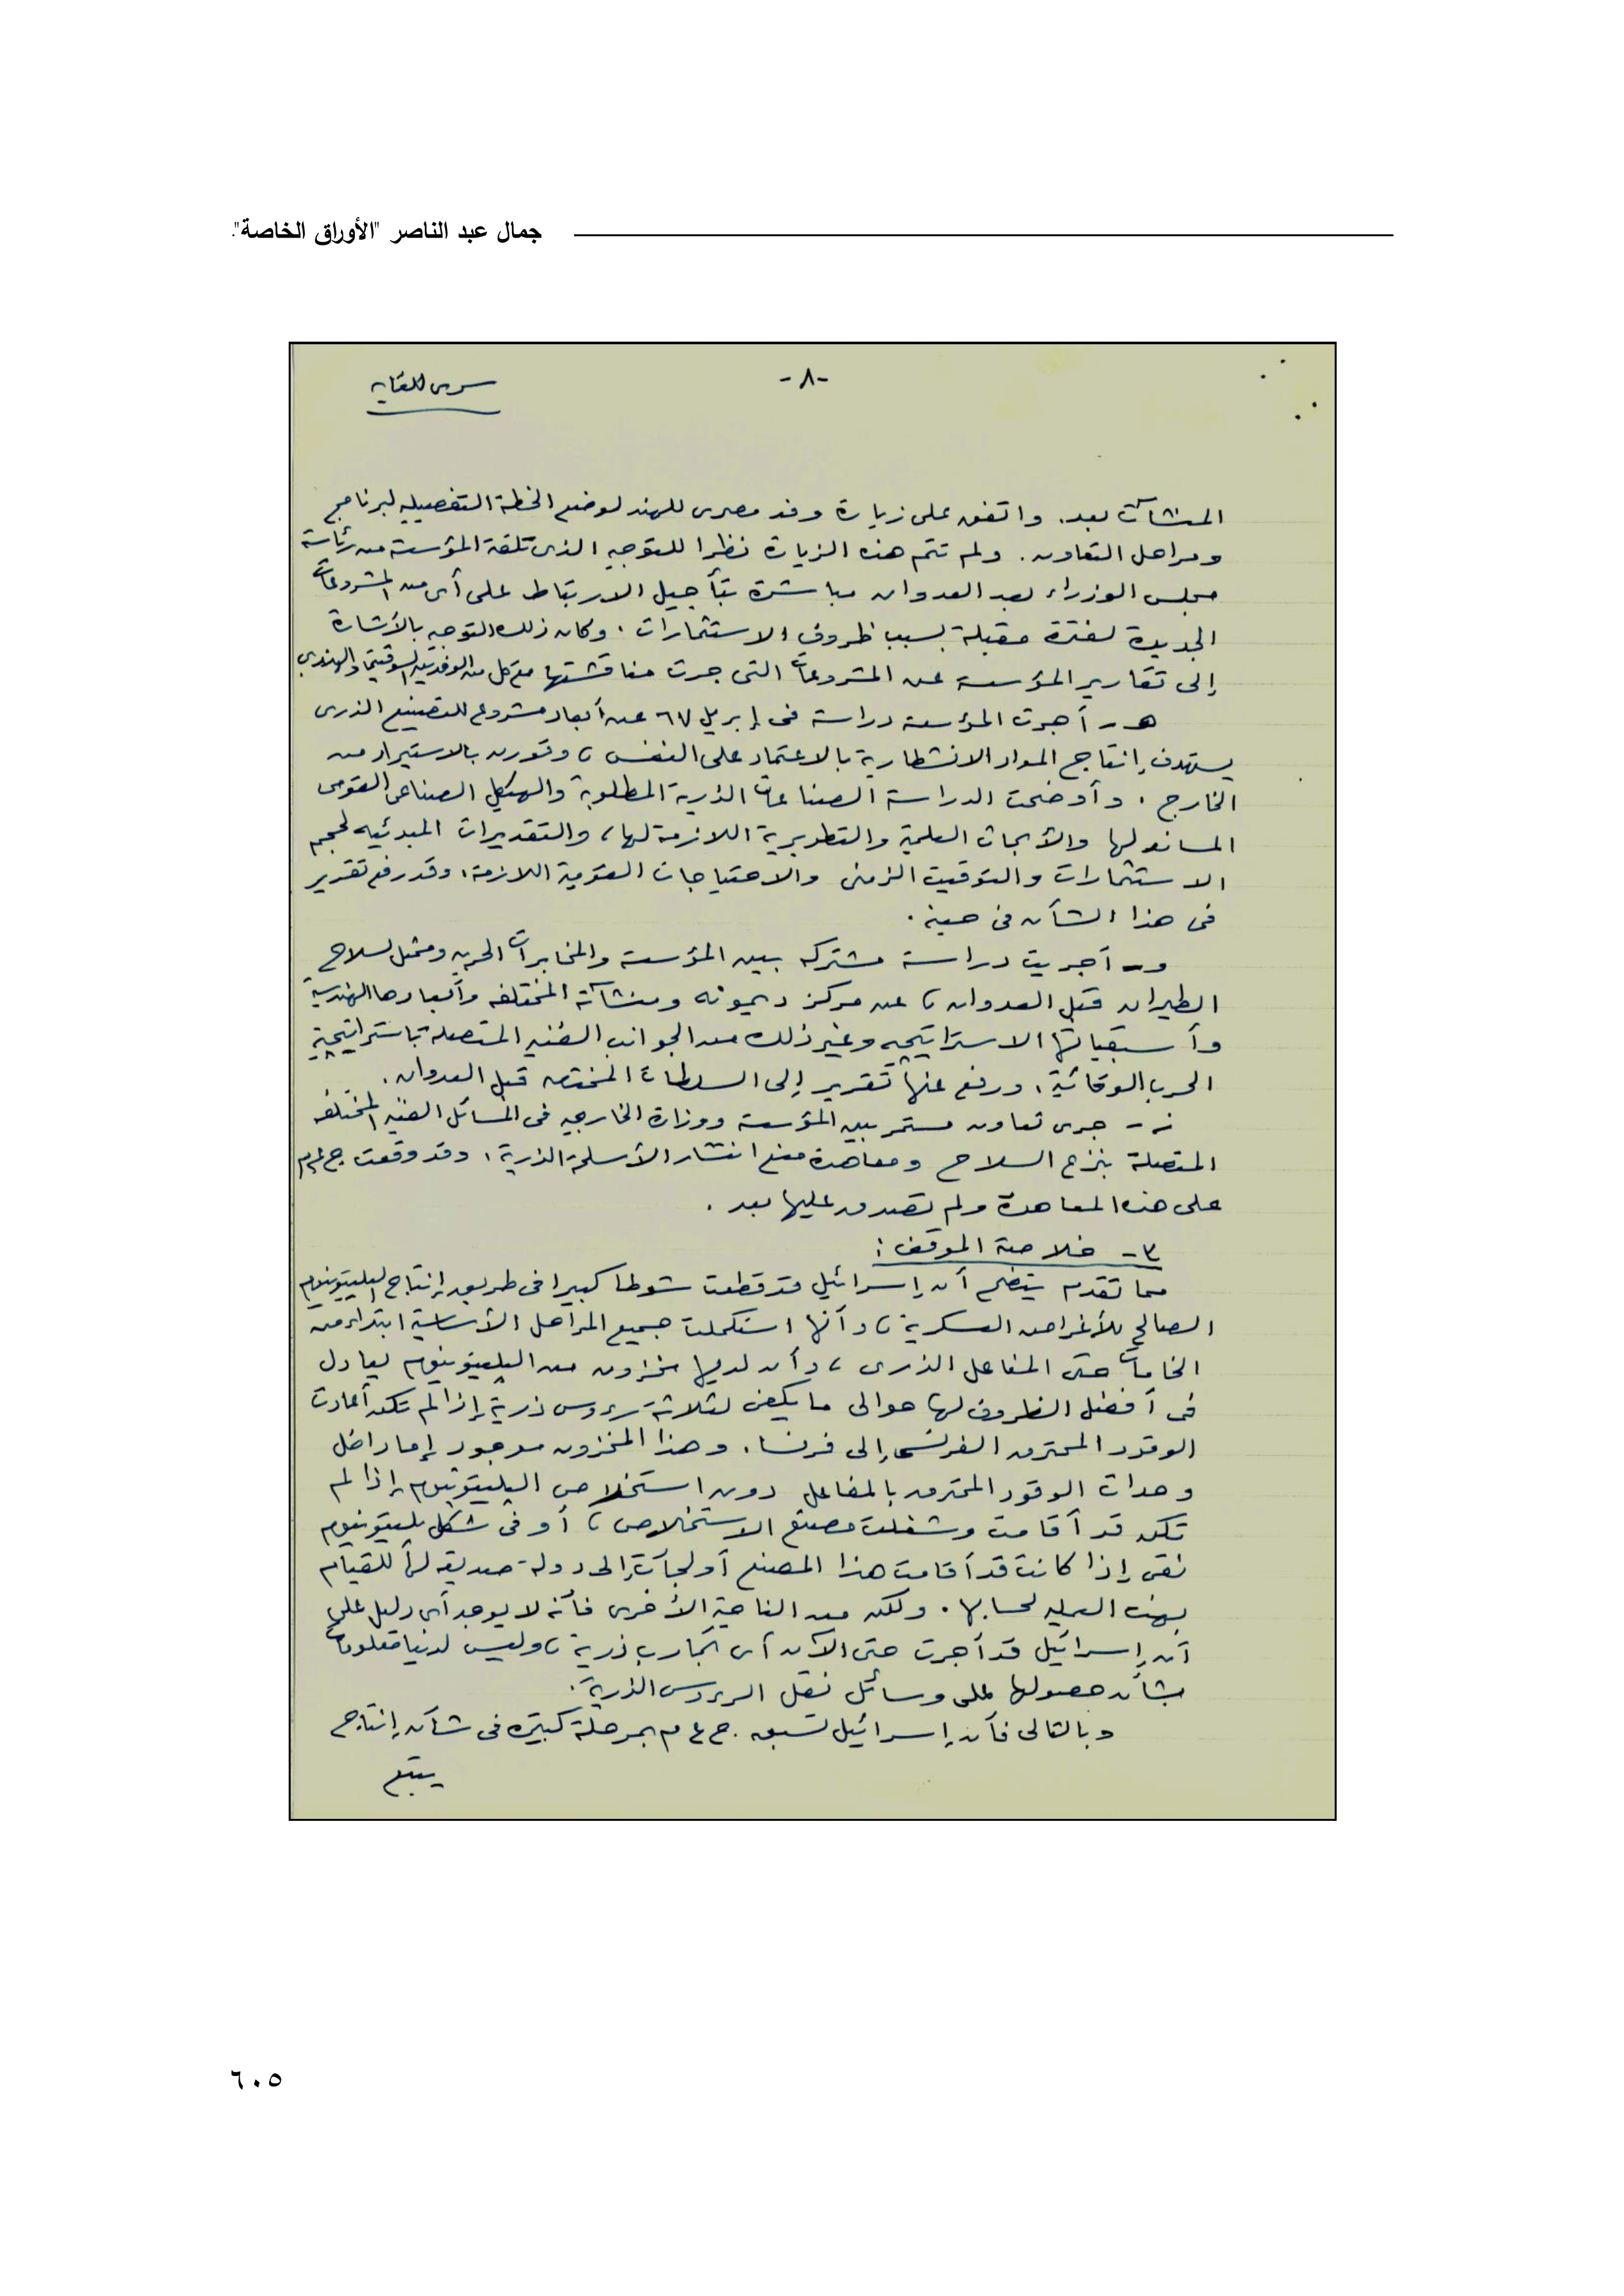 جمال عبد الناصر "الأوراق الخاصة".
-٨-
سرى للغاية
المنشآت بعد. واتفق على زيارة وفد مصرى للهند لوضع الخطة التفصيليه لبرنامج
ومراحل التعاون. ولم تتم هذه الزيارة نظرا للتوجيه الذى تلقته المؤسسة من رئاسة
مجلس الوزراء بعد العدوان مباشرة بتأجيل الارتباط على أى من المشروعات
الجديدة لفترة مقبلة بسبب ظروف الاستثمارات. وكان ذلك التوجيه بالأشارة
إلى تقارير المؤسسة عن المشروعات التى جرت مناقشتها مع كل من الوفدين السوفيتى والهندى
هـ - أجرت المؤسسة دراسة فى إبريل ٦٧ عن أبعاد مشروع للتصنيع الذرى
يستهدف إنتاج المواد الانشطارية بالاعتماد على النفس، وقورن بالاستيراد من
الخارج. وأوضحت الدراسة الصناعات الذرية المطلوبة والهيكل الصناعى القومى
المساند لها والأبحاث العلمية والتطويرية اللازمة لها، والتقديرات المبدئيه لحجم
الاستثمارات والتوقيت الزمنى والاحتياجات القومية اللازمة، وقد رفع تقرير
فى هذا الشأن فى حينه.
و - أجريت دراسة مشتركه بين المؤسسة والمخابرات الحربيه وممثل لسلاح
الطيران قبل العدوان، عن مركز ديمونه ومنشآته المختلفه وأبعادها الهندسية
وأسبقياتها الاستراتيجيه وغير ذلك من الجوانب الفنيه المتصلة باستراتيجية
الحرب الوقائية، ورفع عنها تقرير إلى السلطات المختصه قبل العدوان.
ز - جرى تعاون مستمر بين المؤسسة ووزارة الخارجيه فى المسائل الفنيه المختلفه
المتصلة بنزع السلاح ومعاهدة منع انتشار الأسلحة الذرية، وقد وقعت ج ع م
على هذه المعاهدة ولم تصدق عليها بعد.
٣ - خلاصة الموقف:
مما تقدم يتضح أن إسرائيل قد قطعت شوطا كبيرا فى طريق إنتاج البليتونيوم
الصالح للأغراض العسكرية، وأنها استكملت جميع المراحل الأساسية ابتداء من
الخامات حتى المفاعل الذرى، وأن لديها مخزون من البليتونيوم يعادل
فى أفضل الظروف لها حوالى ما يكفى لثلاثة رءوس ذرية إذا لم تكن أعادت
الوقود المحترق الفرنسى إلى فرنسا. وهذا المخزون موجود إما داخل
وحدات الوقود المحترق بالمفاعل دون استخلاص البليتونيوم إذا لم
تكن قد أقامت وشغلت مصنع الاستخلاص، أو فى شكل بليتونيوم
نقى إذا كانت قد أقامت هذا المصنع أو لجأت إلى دولة صديقه لها للقيام
بهذه العملية لحسابها. ولكن من الناحية الأخرى فأنه لا يوجد أى دليل على
أن إسرائيل قد أجرت حتى الآن أى تجارب ذرية، وليس لدينا معلومات
بشأن حصولها على وسائل نقل الرءوس الذرية.
وبالتالى فأن إسرائيل تسبق ج ع م بمرحلة كبيرة فى شأن إنتاج
يتبع
٦٠٥